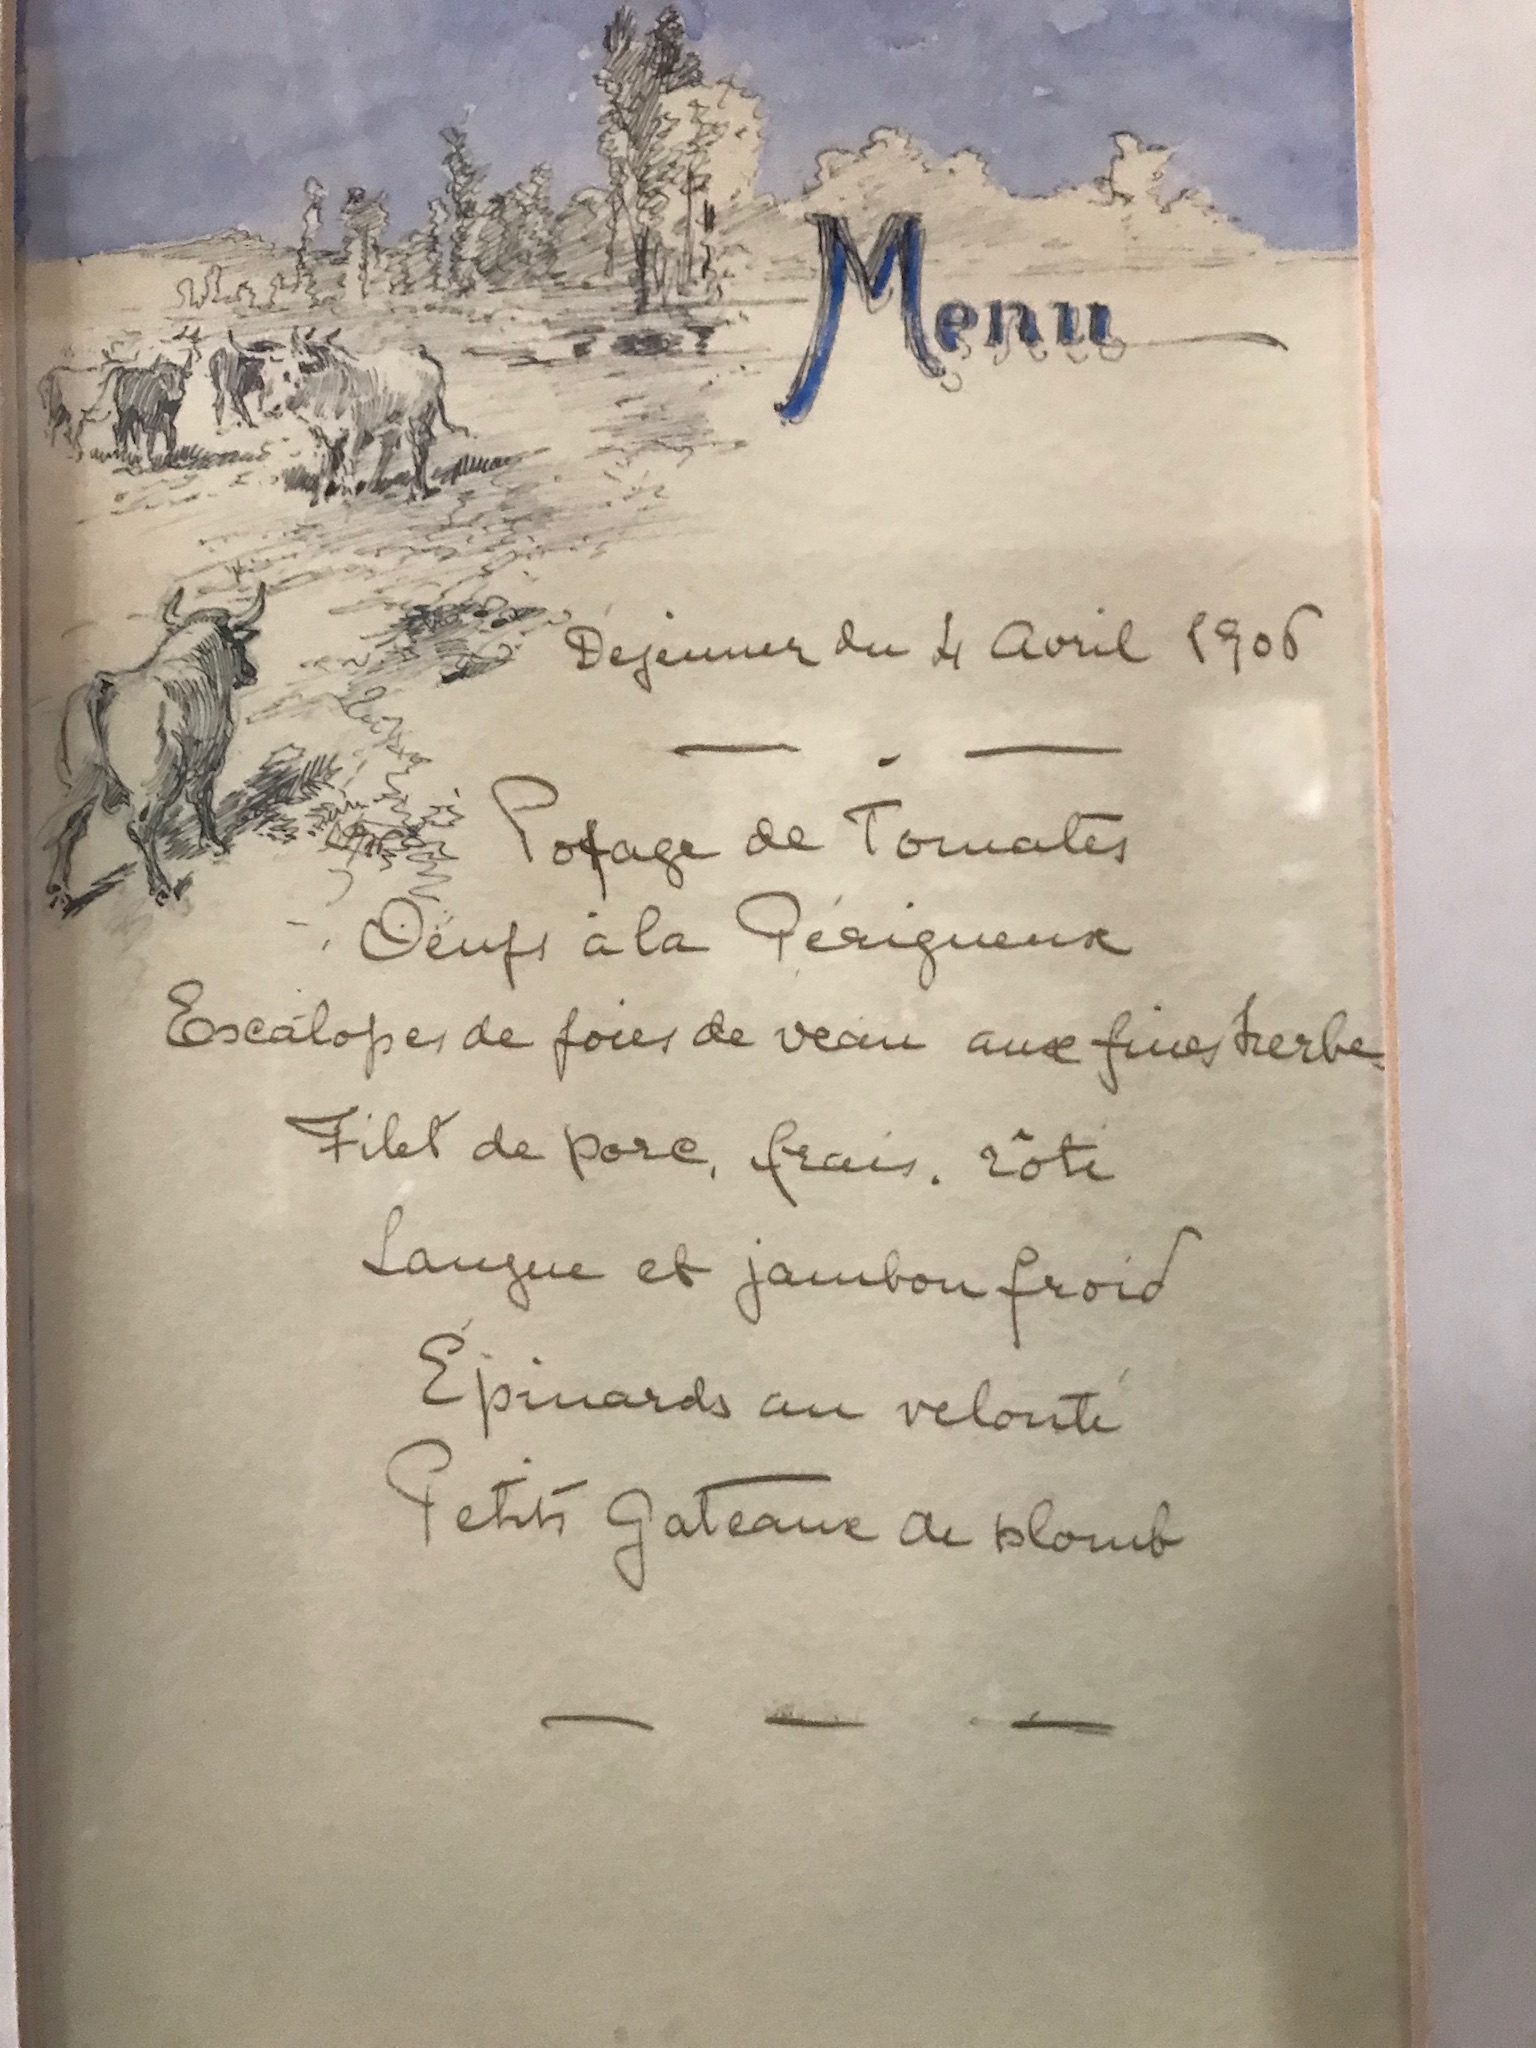 Menu
Déjeuner du 4 Avril 1906
Potage de Tomates
Oeufs à la Périgueux
Escalopes de foies de veau aux fines herbes
Filet de porc, frais. rôti
Langue et jambon froid
Épinards au velouté
Petits Gateaux de plomb